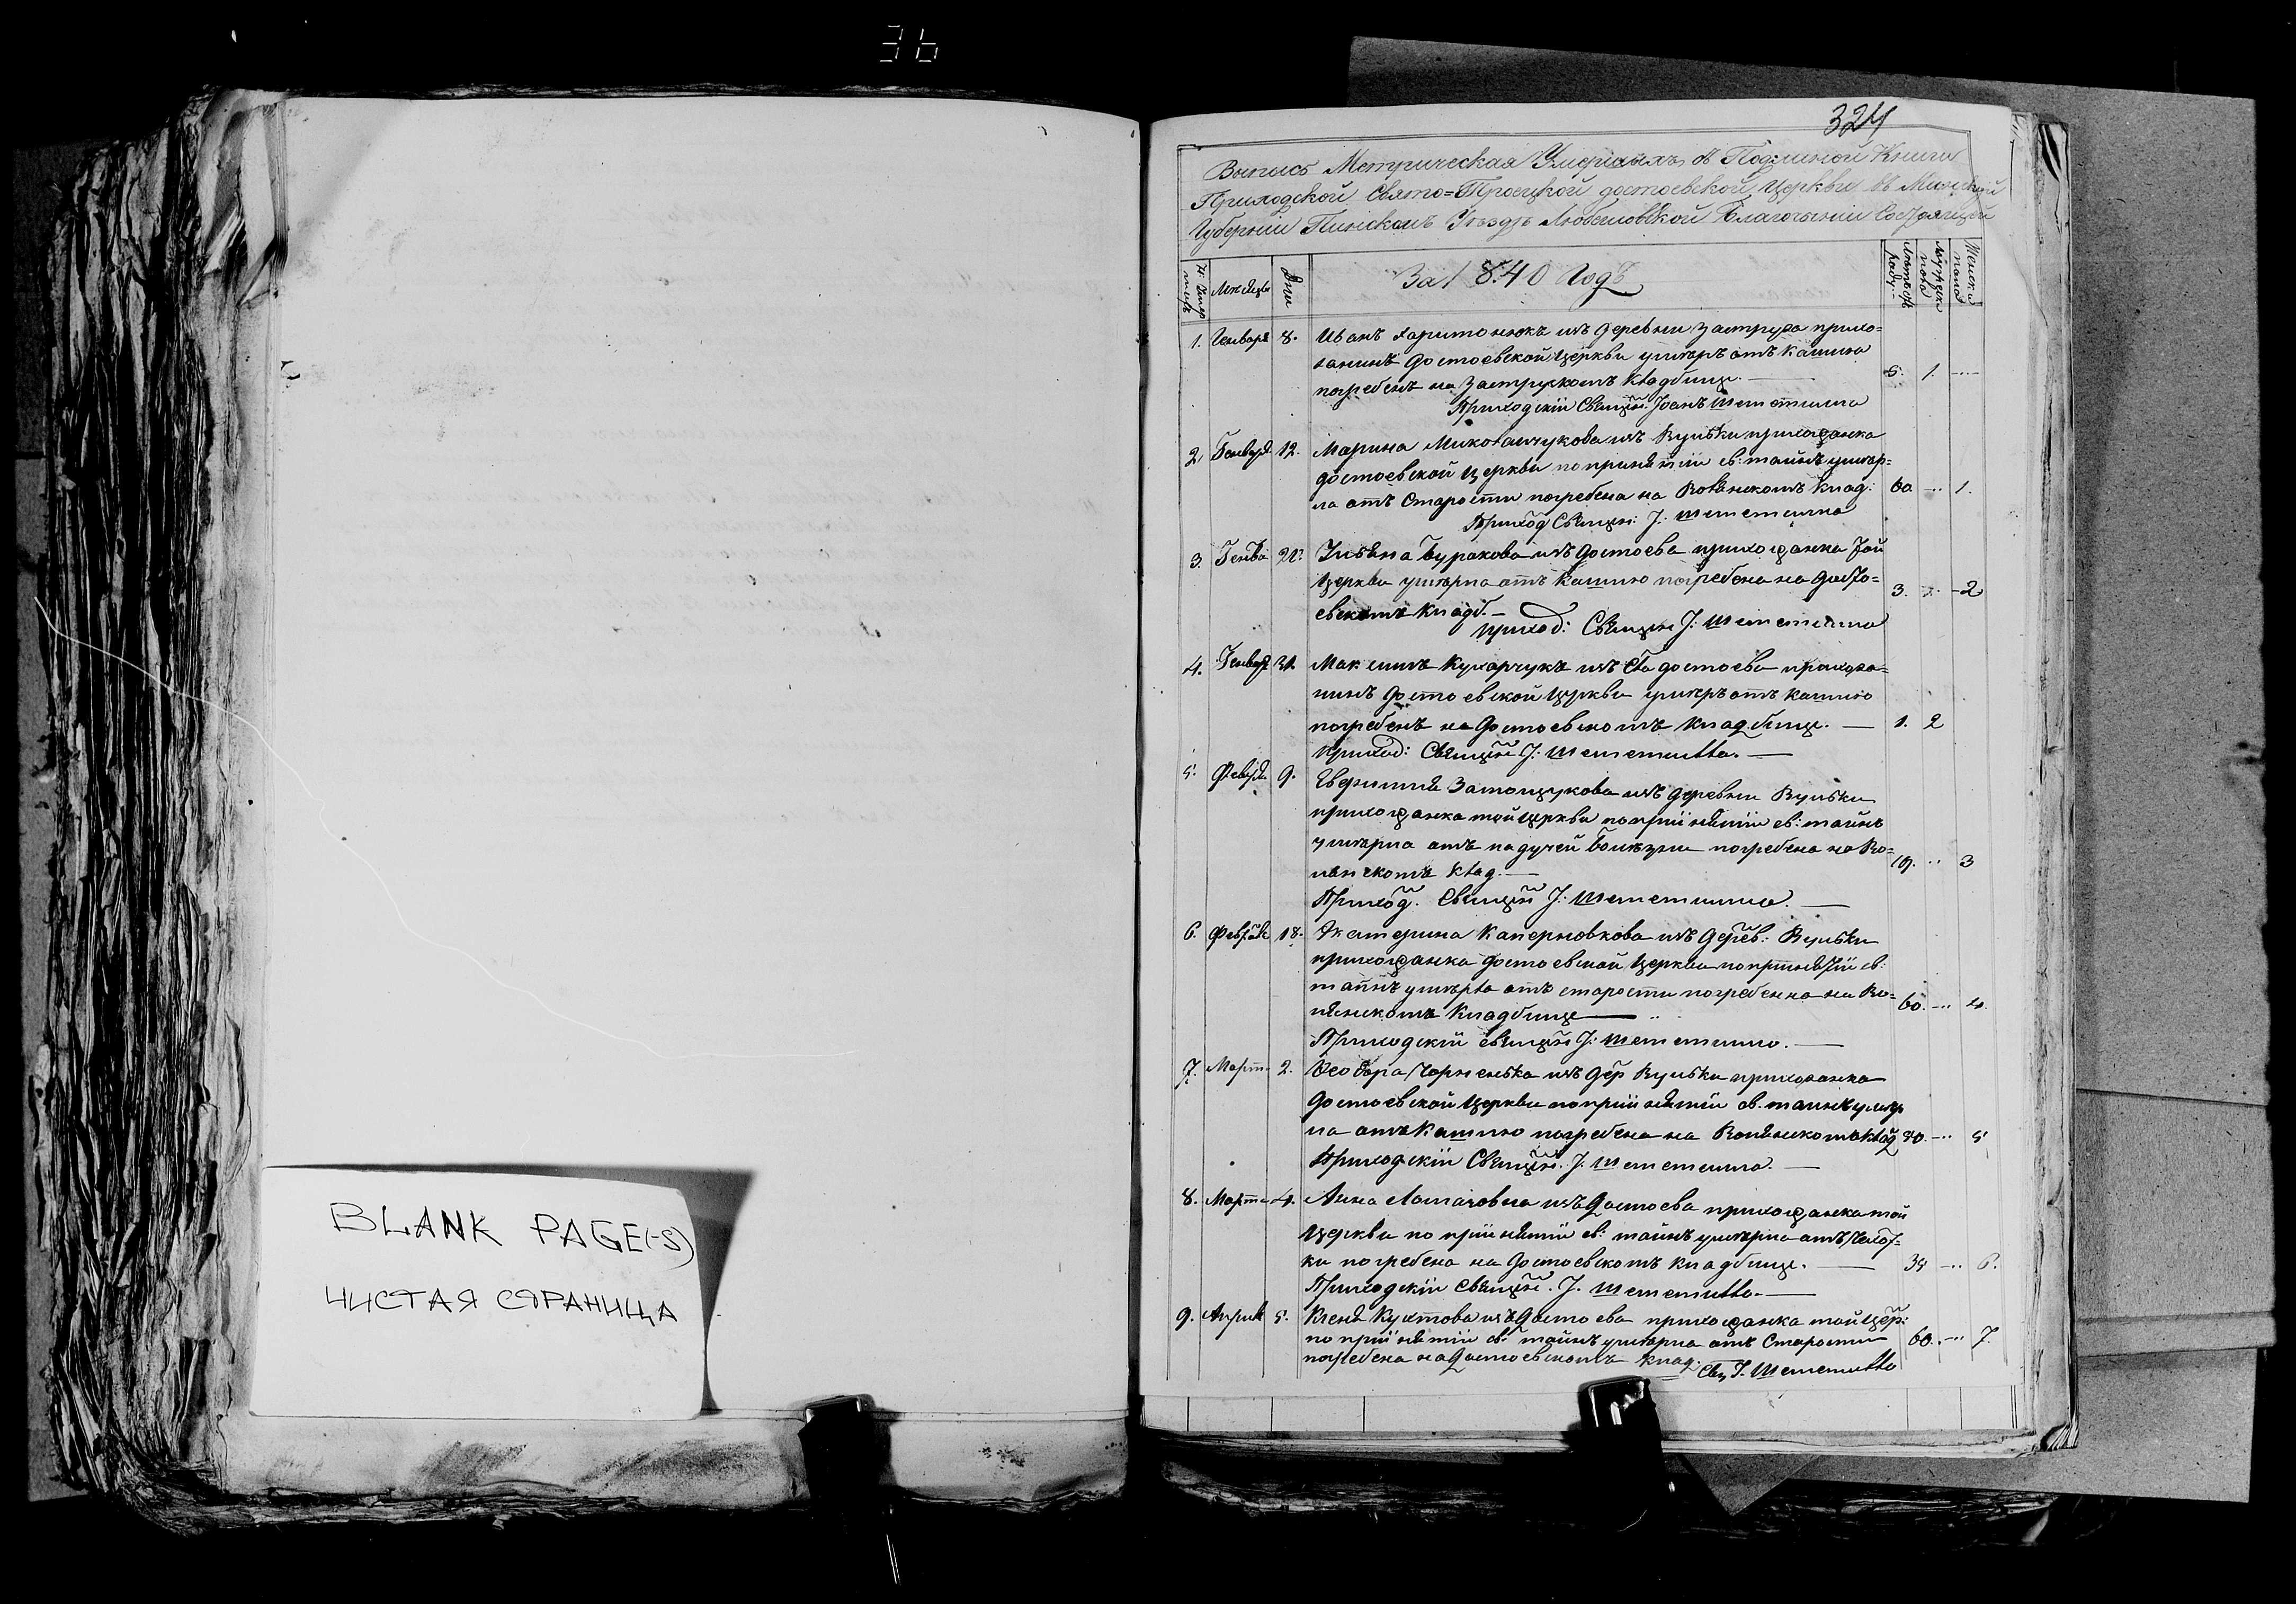 36
BLANK PAGE(-S)
ЧИСТАЯ СТРАНИЦА
324
Выпись Метрическая Умершыхъ съ Подлиной Книги
Приходской Свято=Троецкой достоевской Церкви въ Минской
Губерніи Пинскомъ Уѣздѣ Любешовской Благочыніи Состоящей
Мѣсяцы
Дни
За 1840 Годъ
Мужеска пола
Женска пола
1. Генваря 8. Иванъ Харитонюкъ изъ деревни Заструга прихо=
жанинъ достоевской Церкви умеръ отъ кашлю
погребенъ на Заструскомъ кладбище. — 5. 1. ....
Приходскій Священ: Іоанъ Шеметилло
2. Генваря 12. Марина Миколайчукова изъ Вульки прихожанка
достоевской Церкви по принятіи св: тайнъ умер=
ла отъ Старости погребена на Волянскомъ клад: 60 ... 1.
Приход Священ: І: Шеметилло
3. Генва Ульяна Буракова изъ достоева прихожанка той
Церкви умерла отъ кашлю погребена на досто=
евскомъ кладб. — 3. .. 2
приход: Священ І: Шеметилло
4. Генваря 31. Максимъ Кухарчукъ изъ села достоева прихожа=
нинъ достоевской Церкви умеръ отъ кашлю
погребенъ на достоевскомъ кладбище. — 1. 2
приход: Священ І: Шеметилло. —
5. Феврал. 9. Евфимия изъ деревни Вульки
прихожанка той Церкви по пріинятіи св: тайнъ
умерла отъ падучей болѣзни погребена на Во=
лянскомъ клад. — 19. .. 3
Приход. Священ І: Шеметилло. —
6. Февраля 18. Екатерина изъ дерев: Вульки
прихожанка достоевской Церкви по принятіи св:
тайнъ умерла отъ старости погребенна на Во=
лянскомъ кладбище — 60. ... 4.
Приходскій священ І: Шеметилло. —
7. Март. 2. Ѳеодора Чорненька изъ дер Вульки прихожанка
достоевской Церкви по пріинятіи св. тайнъ умер
ла отъ кашлю погребена на Волянскомъ клад ... 5
Приходскій Священ. І. Шеметилло. —
8. Марта 4. Анна изъ достоева прихожанка той
Церкви по пріинятіи св: тайнъ умерла отъ чахот=
ки погребена на достоевскомъ кладбище. — ... 6.
Приходскій Священ. І. Шеметилло. —
9. Април 5. Ксеня изъ достоева прихожанка той Цер:
по пріинятіи св: тайнъ умерла отъ Старости 60. ... 7.
погребена на достоевскомъ клад.
Свщ І. Шеметилло